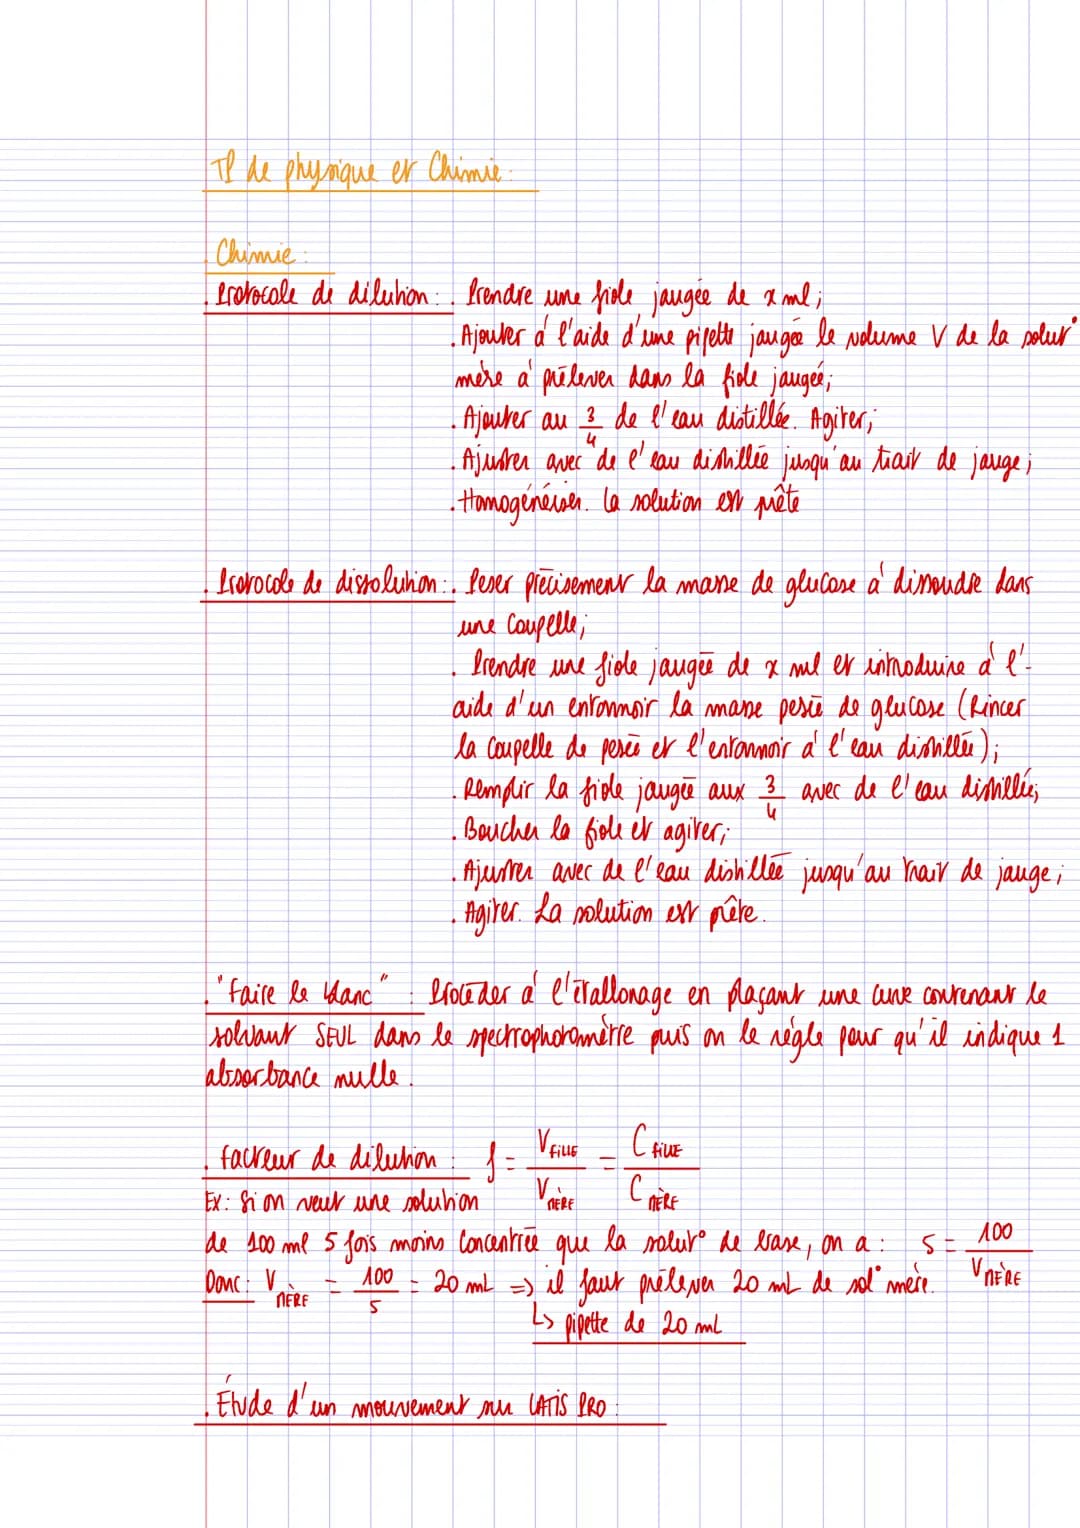 TP de physique et Chimie :
. Chimie :
. Protocole de dilution : . Prendre une fiole jaugée de x ml ;
. Ajouter à l'aide d'une pipette jaugée le volume V de la solut°
mère à prélever dans la fiole jaugée ;
. Ajouter au 3/4 de l'eau distillée. Agiter ;
. Ajuster avec de l'eau distillée jusqu'au trait de jauge ;
. Homogénéiser. La solution est prête
. Protocole de dissolution : . Peser précisement la masse de glucose à dissoudre dans
une coupelle ;
. Prendre une fiole jaugée de x ml et introduire à l'-
aide d'un entonnoir la masse pesée de glucose (Rincer
la coupelle de pesée et l'entonnoir à l'eau distillée) ;
. Remplir la fiole jaugée aux 3/4 avec de l'eau distillée ;
. Boucher la fiole et agiter ;
. Ajuster avec de l'eau distillée jusqu'au trait de jauge ;
. Agiter. La solution est prête.
. "Faire le blanc" : Procéder à l'étallonage en plaçant une cuve contenant le
solvant SEUL dans le spectrophotomètre puis on le règle pour qu'il indique 1
absorbance nulle.
. facteur de dilution : f = V FILLE / V MÈRE = C FILLE / C MÈRE
Ex : Si on veut une solution
de 100 ml 5 fois moins concentrée que la solut° de base, on a : 5 = 100 / V MÈRE
Donc : V MÈRE = 100/5 = 20 mL => il faut prélever 20 mL de sol° mère.
↳ pipette de 20 mL
. Étude d'un mouvement sur LATIS PRO :